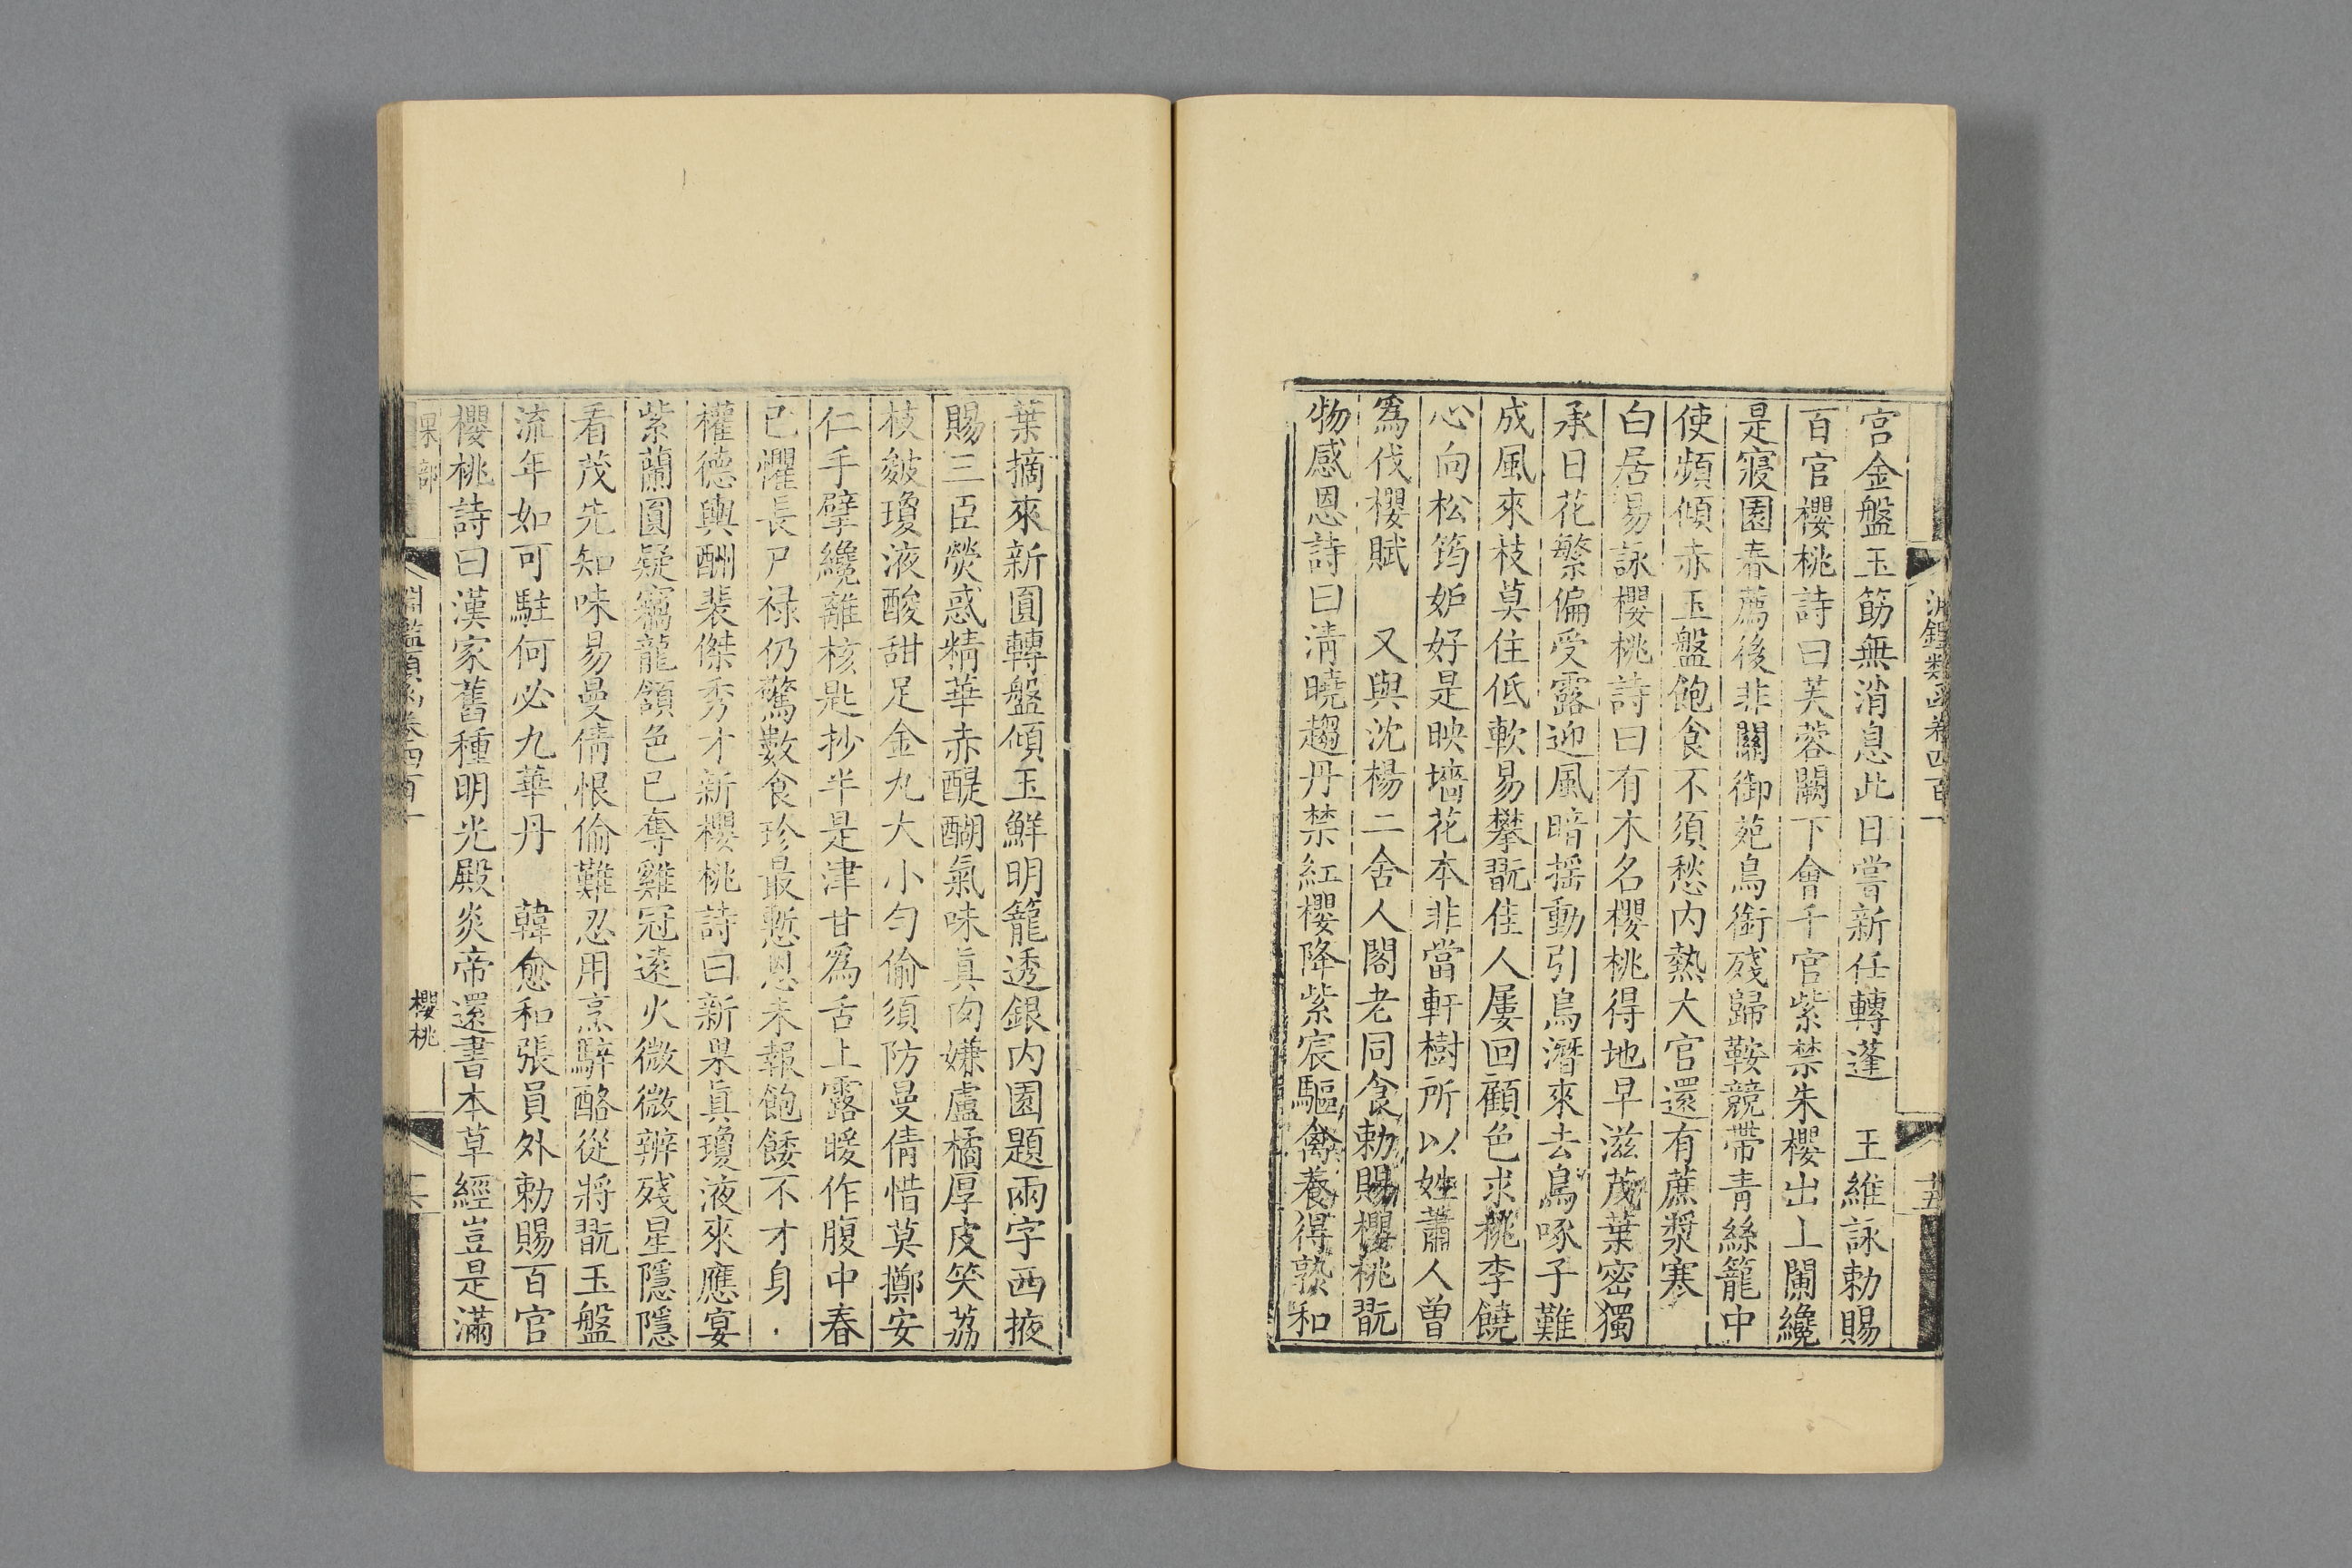 淵鑑類函卷四百一
十五
宮金盤玉筯無消息此日嘗新任轉蓬　王維詠勅賜
百官櫻桃詩曰芙蓉闕下會千官紫禁朱櫻出上闌纔
是寢園春薦後非關御苑鳥銜殘歸鞍競帶青絲籠中
使頻傾赤玉盤飽食不須愁内熱大官還有蔗漿寒
白居易詠櫻桃詩曰有木名櫻桃得地早滋茂葉密獨
承日花繁偏受露迎風暗揺動引鳥潛來去鳥啄子難
成風來枝莫住低軟易攀翫佳人屢回顧色求桃李饒
心向松筠妒好是映墻花本非當軒樹所以姓蕭人曽
爲伐櫻賦　又與沈楊二舍人閣老同食勅賜櫻桃翫
物感恩詩曰清曉趨丹禁紅櫻降紫宸驅禽養得熟和
葉摘來新圓轉盤傾玉鮮明籠透銀内園題兩字西掖
賜三臣熒惑精華赤醍醐氣味真肉嫌盧橘厚皮笑荔
枝皴瓊液酸甜足金丸大小勻偷須防曼倩惜莫擲安
仁手擘纔離核匙抄半是津甘爲舌上露暖作腹中春
已懼長尸禄仍驚數食珍最慙恩未報飽餧不才身
權德輿酬裴傑秀才新櫻桃詩曰新果真瓊液來應宴
紫蘭圓疑竊龍頷色已奪雞冠遠火微微辨殘星隱隱
看茂先知味易曼倩恨偷難忍用烹騂酪從將翫玉盤
流年如可駐何必九華丹　韓愈和張員外勅賜百官
櫻桃詩曰漢家舊種明光殿炎帝還書本草經豈是滿
果部
淵鑑類函卷四百一
櫻桃
十六